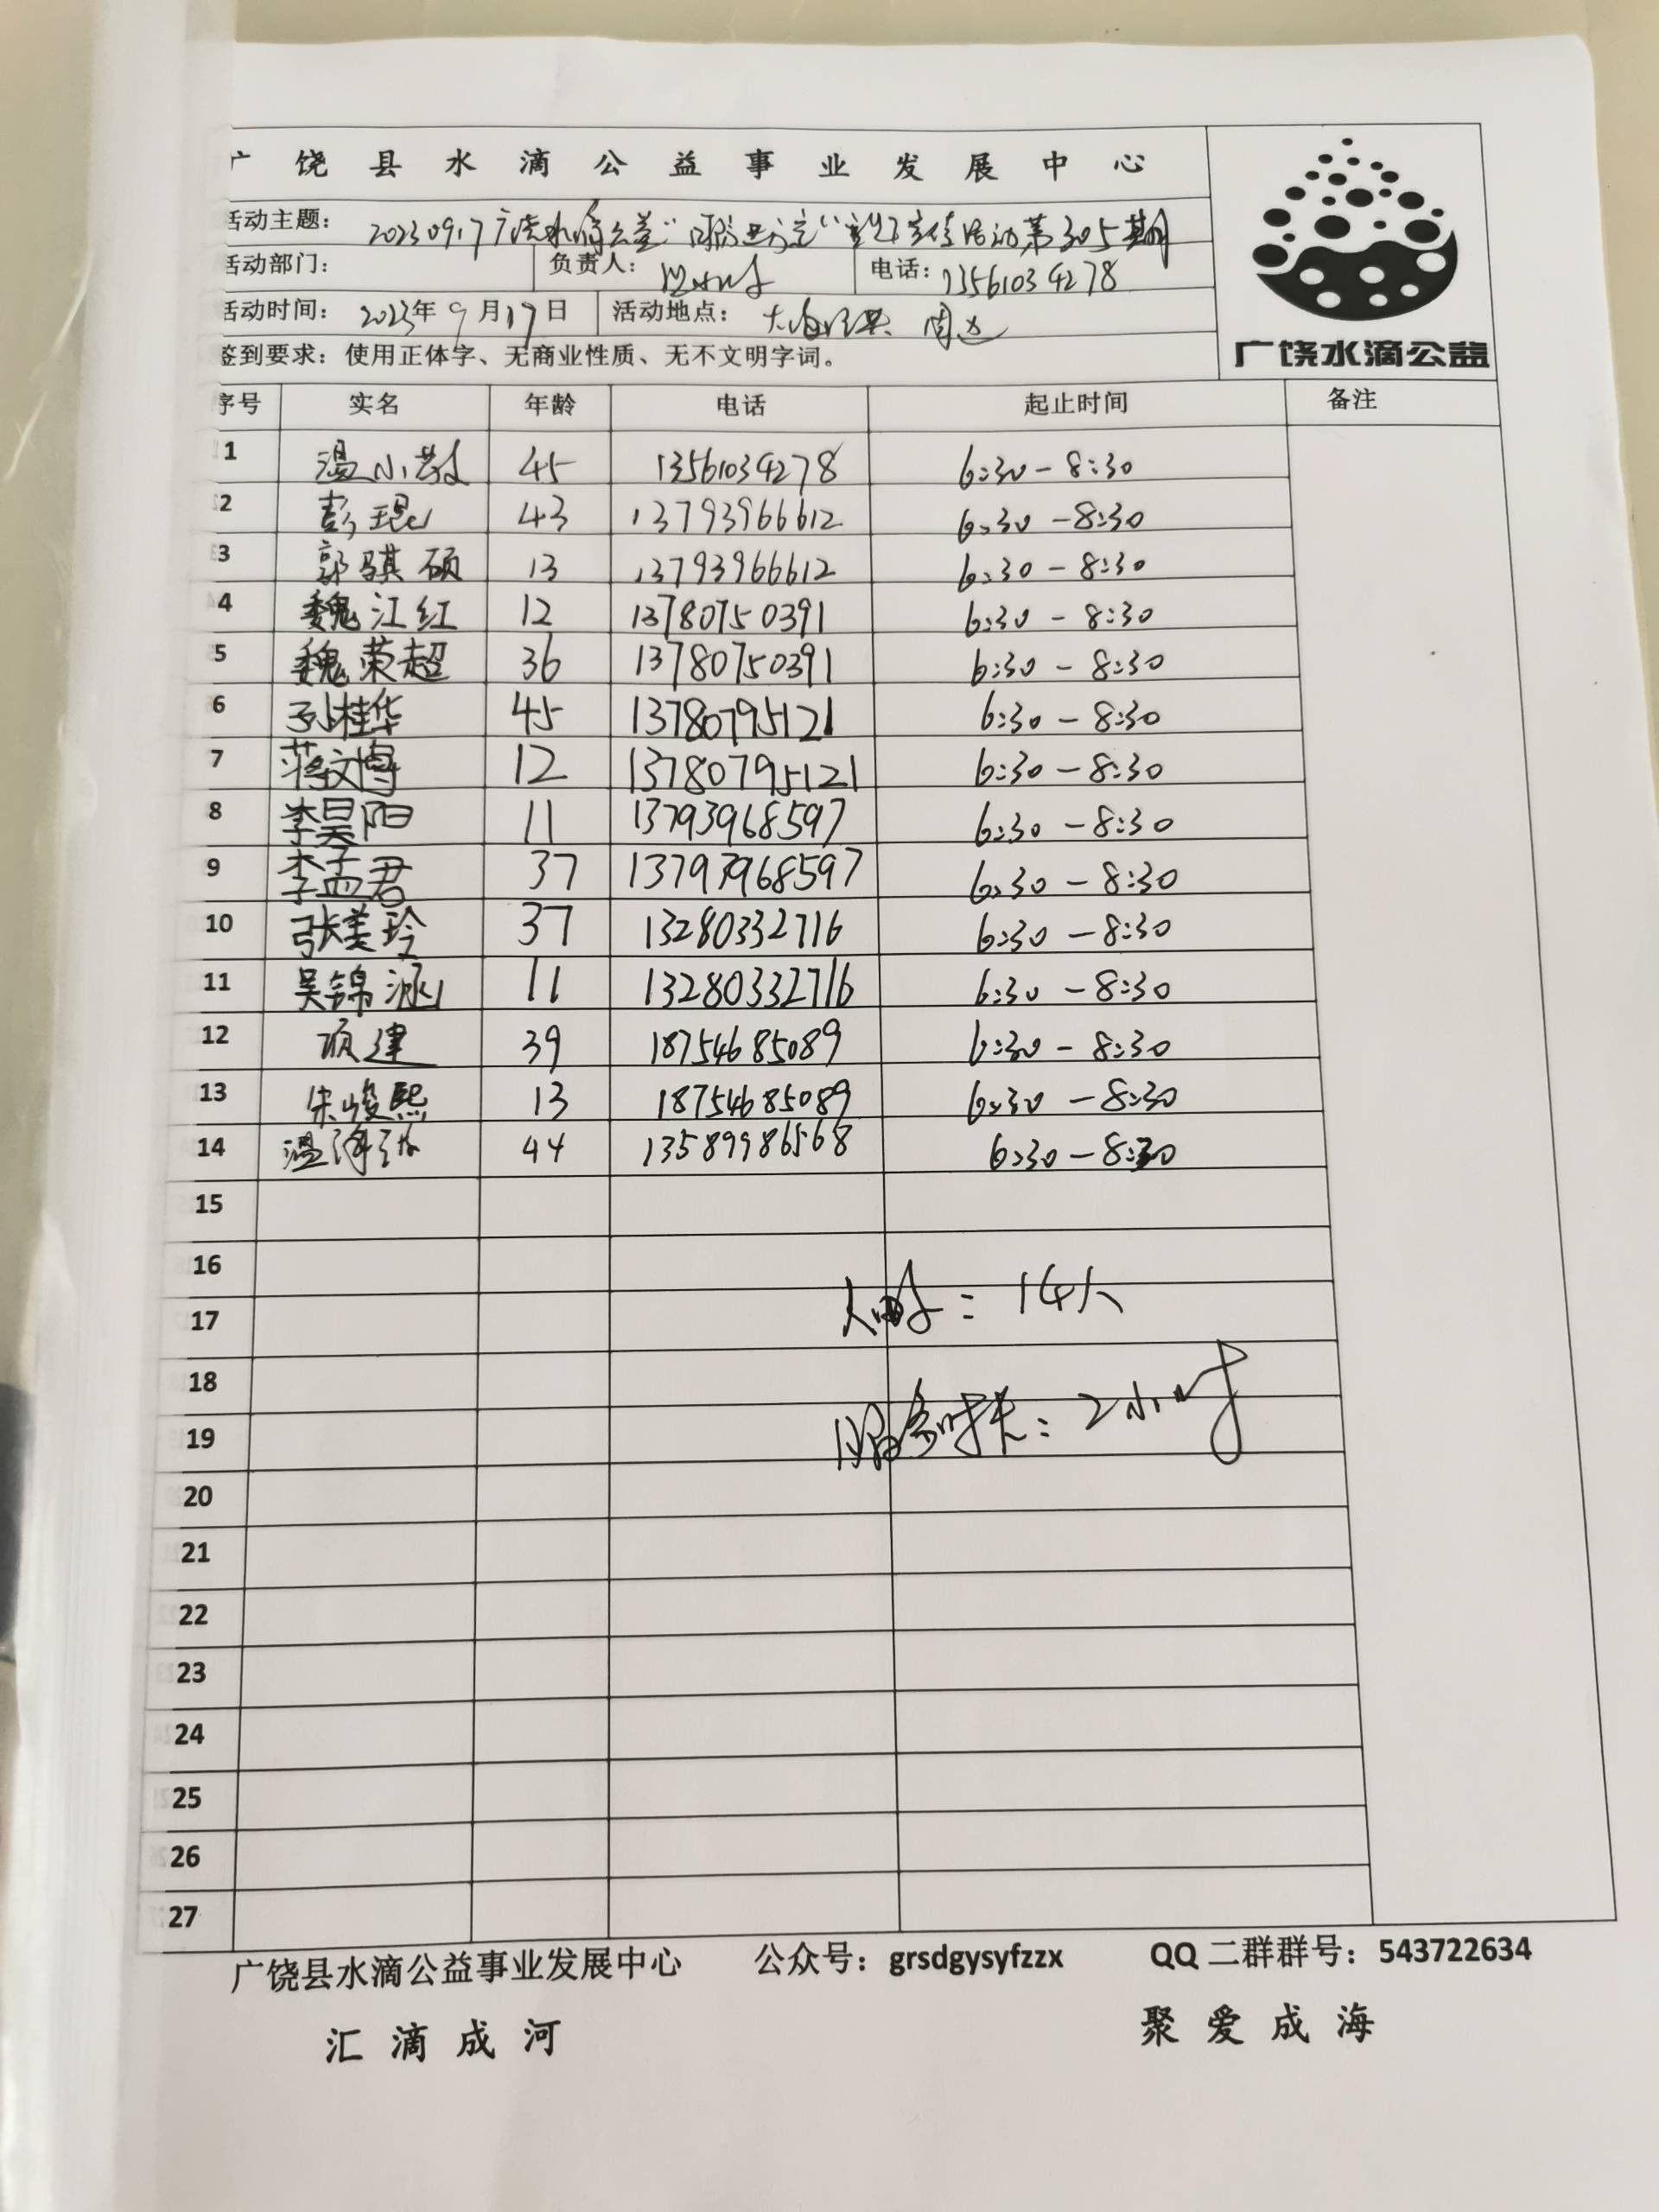 广 饶 县 水 滴 公 益 事 业 发 展 中 心
活动主题: 20230917广饶水滴公益 活动第305期
活动部门: 负责人: 电话: 13561034278
活动时间: 2023年 9 月 17 日 活动地点: 周边
签到要求: 使用正体字、无商业性质、无不文明字词。
广饶水滴公益
序号 实名 年龄 电话 起止时间 备注
1 温小 45 13561034278 6:30-8:30
2 彭琨 43 13793966612 6:30-8:30
3 郭骐硕 13 13793966612 6:30-8:30
4 魏江红 12 13780750391 6:30-8:30
5 魏荣超 36 13780750391 6:30-8:30
6 孙桂华 45 13780795121 6:30-8:30
7 蒋文博 12 13780795121 6:30-8:30
8 李昊阳 11 13793968597 6:30-8:30
9 李孟君 37 13793968597 6:30-8:30
10 张美玲 37 13280332716 6:30-8:30
11 吴锦涵 11 13280332716 6:30-8:30
12 建 39 18754685089 6:30-8:30
13 朱峻熙 13 18754685089 6:30-8:30
14 温 44 13589986568 6:30-8:30
15
16
人数: 14人
17
18
服务时长: 2小时
19
20
21
22
23
24
25
26
27
广饶县水滴公益事业发展中心 公众号: grsdgysyfzzx QQ二群群号: 543722634
汇 滴 成 河 聚 爱 成 海